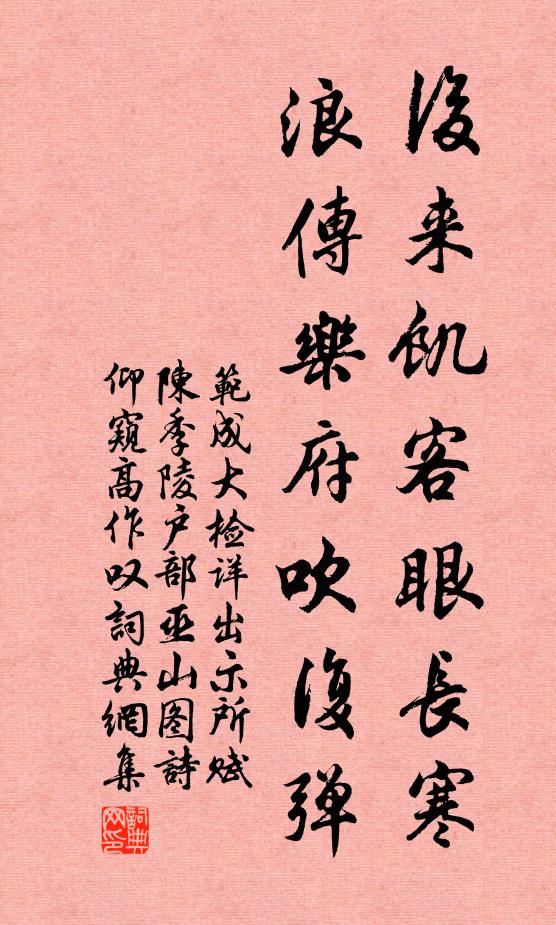 後来飢客眼長寒
浪傳樂府吹復弾
範成大檢详出示所赋
陳季陵户部巫山图詩
仰窺高作叹詞典網集
詞典
网印